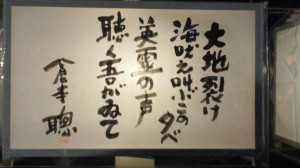 大地裂け
海吠え叫ぶこの夕べ
英霊の声
聴く吾がゐて
倉本聰